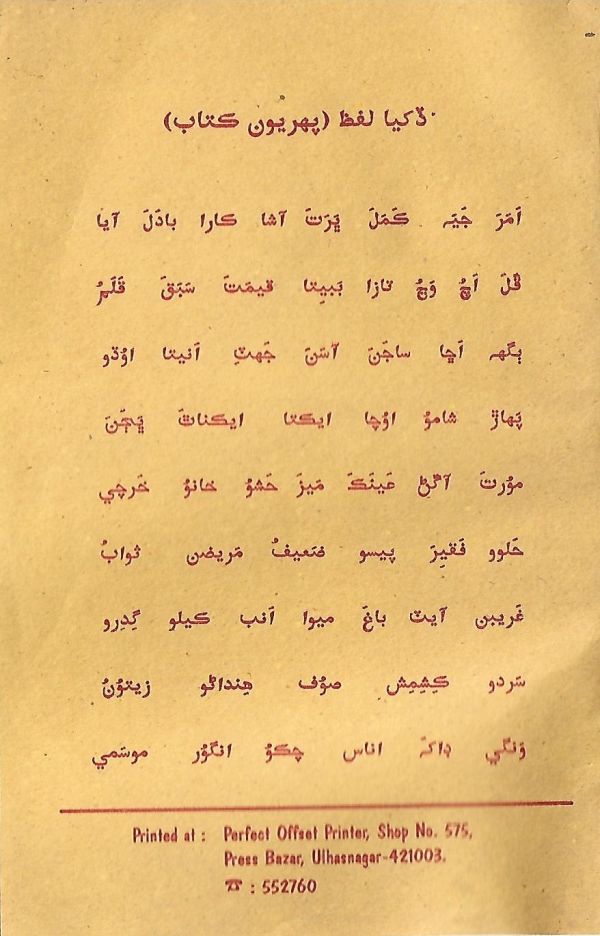 ڏکيا لفظ (پهريون ڪتاب)
اَمَرَ جَيَہ ڪَمَلَ ڀَرَتَ آشا ڪارا بادَلَ آيا
گُلَ اَڇُ وَڃُ تازا ٻَٻِيتا قيمَتَ سَبَقَ قَلَمُ
ٻگَهہ اَڇا ساڄَنَ آسَنَ جَهٽِ اَنيتا اوُڏو
پَهاڙَ شاموُ اوُچا ايڪتا ايڪناٿَ ڀَڄَنَ
موُرتَ آڱُڻِ عَينَڪَ مَيزَ حَشوُ خانوُ خَرچي
حَلوو فَقيرَ پيسو ضَعيفُ مَريضن ثوابُ
غَريبن آيٽ باغَ ميوا اَنب ڪيلو گِدِرو
سَردو ڪِشِمِش صوُف هِنداڻو زيتوُنُ
وَنگي ڊاکَہ اناس چڪوُ انگوُر موسَمي
Printed at : Perfect Offset Printer, Shop No. 575,
Press Bazar, Ulhasnagar-421003.
☎ : 552760